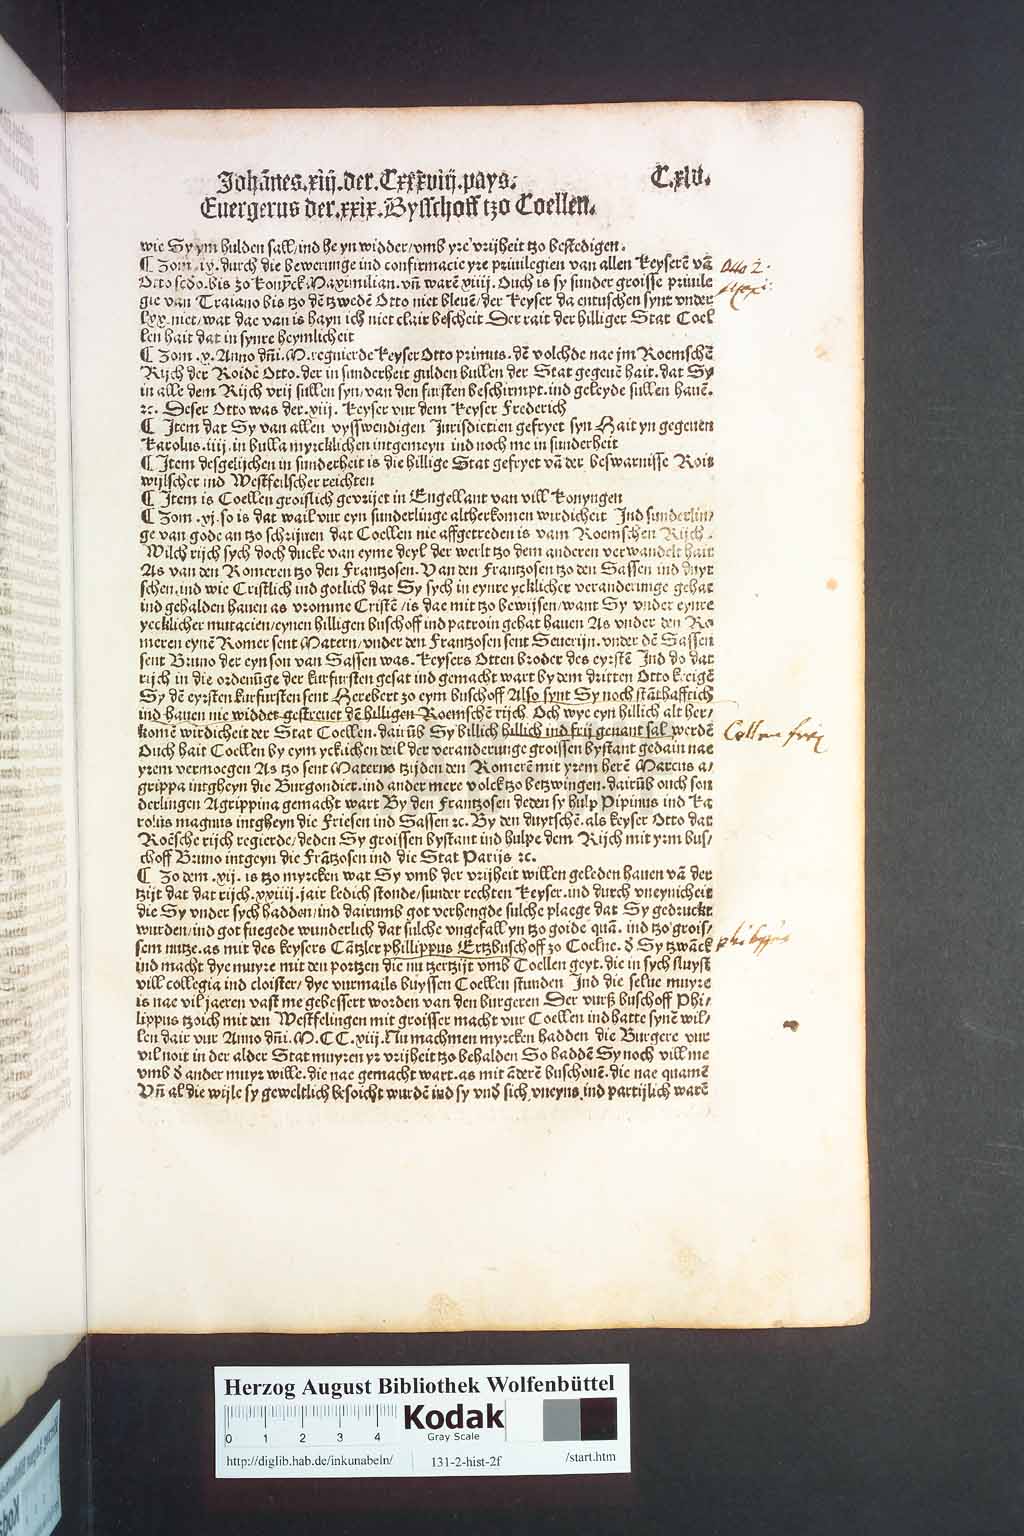 Johānes.xiij.der.Cxxxviij.pays. C.xlv.
Euergerus der.xxix.Bysschoff tzo Coellen.
wie Sy ym hulden sall/ind he yn widder/vmb yre vrijheit tzo bestedigen.
¶ Zom .ix. durch die bewerunge ind confirmacie yre priuilegien van allen keyserē vā
Otto scdo.bis zo konyck Maximilian. vñ warē xiiij. Ouch is sy sunder groisse priuile
gie van Traiano bis tzo dē tzwedē Otto niet bleuē/der keyser da entuschen synt vnder
lxx.niet/wat dae van is hayn ich niet clair bescheit Der rait der hilliger Stat Coel
len hait dat in synre heymlicheit
¶ Zom .x. Anno dñi.M.regnierde keyser Otto primus. dē volchde nae jm Roemschē
Rijch der Roide Otto. der in sunderheit gulden bullen der Stat gegeuē hait. dat Sy
in alle dem Rijch vrij sullen syn/van den fursten beschirmpt. ind geleyde sullen hauē.
⁊c. Deser Otto was der .xiij. keyser vur dem keyser Frederich
¶ Item dat Sy van allen vysswendigen Jurisdictien gefryet syn Hait yn gegeuen
karolus .iiij. in bulla myrcklichen intgemeyn ind noch me in sunderheit
¶ Item desgelijchen in sunderheit is die hillige Stat gefryet vā der beswarnisse Rois
wijlscher ind Westfeilscher reichten
¶ Item is Coellen groislich gevrijet in Engellant van vill konyngen
¶ Zom .xj. so is dat wail vur eyn sunderlinge altherkomen wirdicheit Ind sunderlin/
ge van gode an tzo schrijuen dat Coellen nie affgetreden is vam Roemschen Rijch.
Wilch rijch sych doch ducke van eyme deyl der werlt tzo dem anderen verwandelt hait
As van den Romeren tzo den Frantzosen. Van den Frantzosen tzo den Sassen ind duyt
schen. ind wie Cristlich ind gotlich dat Sy sych in eynre ycklicher veranderunge gehat
ind gehalden hauen as vromme Cristē/is dae mit tzo bewijsen/want Sy vnder eynre
yecklicher mutacien/eynen hilligen buschoff ind patroin gehat hauen As vnder den Ro
meren eynē Romer sent Matern/vnder den Frantzosen sent Seuerijn. vnder dē Sassen
sent Bruno der eyn son van Sassen was. keysers Otten broder des eyrstē Ind do dat
rijch in die ordenūge der kurfursten gesat ind gemacht wart by dem dritten Otto kreigē
Sy dē eyrsten kurfursten sent Herebert zo eym buschoff Also synt Sy noch stāthafftich
ind hauen nie widder gestreuet dē hilligen Roemschē rijch Och wye eyn hillich alt her/
komē wirdicheit der Stat Coellen. dairūb Sy billich hillich ind frij genant sal werdē
Ouch hait Coellen by eym yckichen deil der veranderunge groissen bystant gedain nae
yrem vermoegen As tzo sent Maternus tzijden den Romerē mit yrem herē Marcus a/
grippa intgheyn die Burgondier. ind ander mere volck tzo betzwingen. dairūb ouch son
derlingen Agrippina gemacht wart By den Frantzosen deden sy hulp Pipinus ind ka
rolus magnus intgheyn die Friesen ind Sassen ⁊c. By den duytschē. als keyser Otto dat
Roēsche rijch regierde/deden Sy groissen bystant ind hulpe dem Rijch mit yrm bus/
choff Bruno intgeyn die Frātzosen ind die Stat Parijs ⁊c.
¶ Zo dem .xij. is tzo myrcken wat Sy vmb der vrijheit willen geleden hauen vā der
tzijt dat dat rijch. xxiiij. jair ledich stonde/sunder rechten keyser. ind durch vneynicheit
die Sy vnder sych hadden/ind dairumb got verhengde sulche plaege dat Sy gedruckt
wurden/ind got fuegede wunderlich dat sulche vngefall yn tzo goide quā. ind tzo grois/
sem nutze. as mit des keysers Cātzler phillippus Ertzbuschoff zo Coelne. d̄ Sy tzwāck
ind macht dye muyre mit den portzen die nu tzertzijt vmb Coellen geyt. die in sych sluyst
vill collegia ind cloister/ dye vurmails buyssen Coellen stunden Ind die selue muyre
is nae vil jaeren vast me gebessert worden van den burgeren Der vurß buschoff Phi/
lippus tzoich mit den Westfelingen mit groisser macht vur Coellen ind hatte synē wil/
len dair vur Anno dñi.M.C C.xiij. Nu machmen myrcken hadden die Burgere vur
vil noit in der alder Stat muyren yr vrijheit tzo behalden So haddē Sy noch vill me
vmb d̄ ander muyr wille. die nae gemacht wart. as mit āderē buschouē. die nae quamē
Vñ al die wijle sy geweltlich besoicht wurdē ind sy vnd̄ sich vneyns ind partijlich warē
Otto 2.
Collen frey
philippus
Herzog August Bibliothek Wolfenbüttel
0 1 2 3 4
Kodak
Gray Scale
http://diglib.hab.de/inkunabeln/ 131-2-hist-2f /start.htm